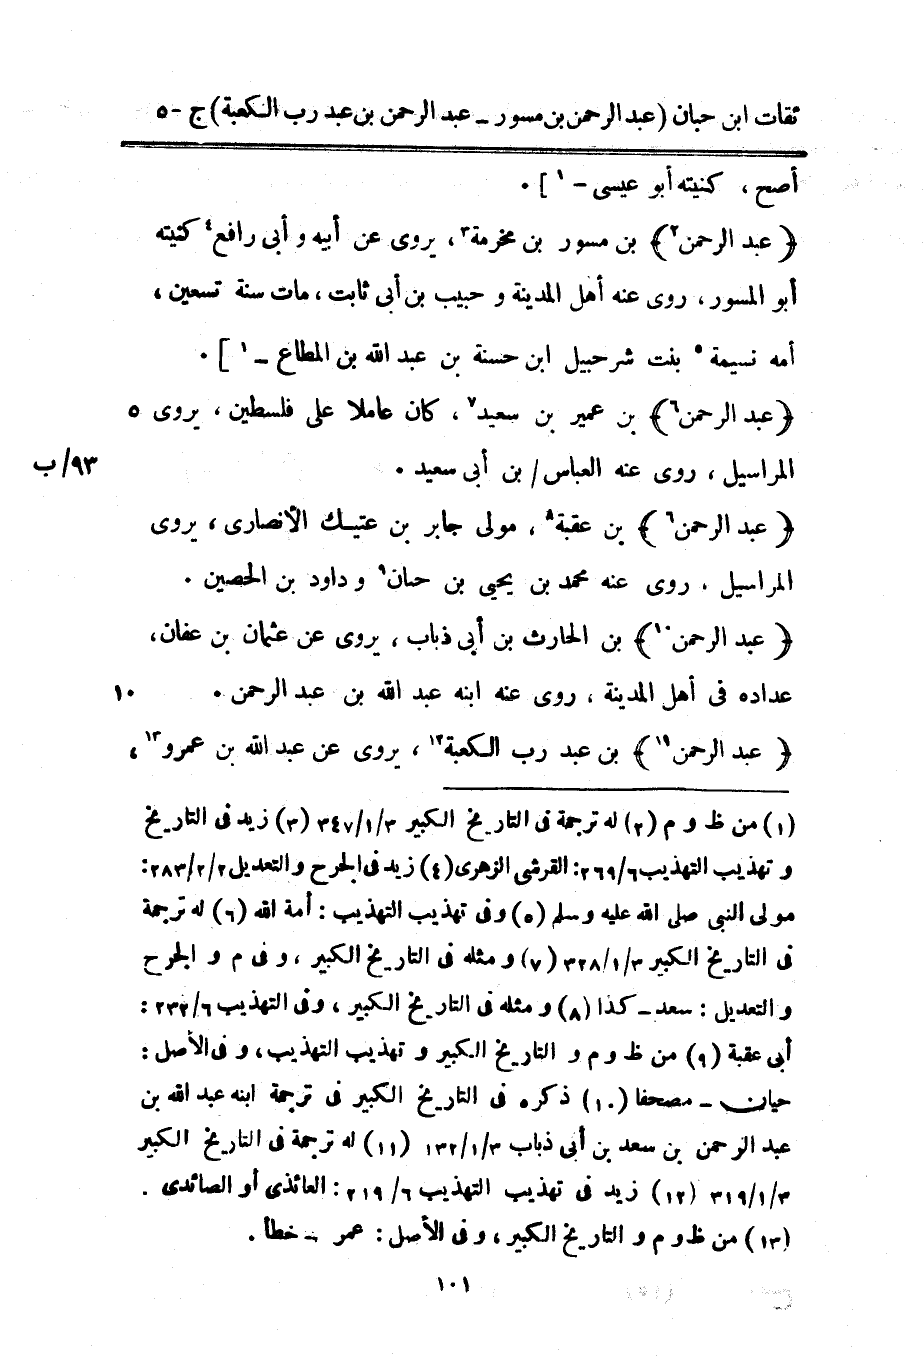 ثقات ابن حبان (عبد الرحمن بن مسور ـ عبد الرحمن بن عبد رب الكعبة) ج - ٥
أصح ، كنيته أبو عيسى - ١ ] ٠
﴿ عبد الرحمن٢﴾ بن مسور بن مخرمة٣، يروى عن أبيه و أبى رافع٤ كنيته
أبو المسور ، روى عنه أهل المدينة و حبيب بن أبى ثابت ، مات سنة تسعين ،
أمه نسيمة ٥ بنت شرحبيل ابن حسنة بن عبد الله بن المطاع ـ ١ ] ٠
﴿ عبد الرحمن٦﴾ بن عمير بن سعيد٧ ، كان عاملا على فلسطين ، يروى ٥
المراسيل ، روى عنه العباس / بن أبى سعيد ٠ ٩٣/ب
﴿ عبد الرحمن٦ ﴾ بن عقبة٨ ، مولى جابر بن عتيك الأنصارى ، يروى
المراسيل ، روى عنه محمد بن يحيى بن حبان٩ و داود بن الحصين ٠
﴿ عبد الرحمن١٠﴾ بن الحارث بن أبى ذباب ، يروى عن عثمان بن عفان،
عداده فى أهل المدينة ، روى عنه ابنه عبد الله بن عبد الرحمن ٠ ١٠
﴿ عبد الرحمن١١﴾ بن عبد رب الكعبة١٢ ، يروى عن عبد الله بن عمرو١٣ ،
(١) من ظ و م (٢) له ترجمة فى التاريخ الكبير ٣/١/٣٤٧ (٣) زيد فى التاريخ
و تهذيب التهذيب ٦/٢٦٩: القرشى الزهرى (٤) زيد فى الجرح و التعديل ٢/٢/٢٨٣:
مولى النبى صلى الله عليه وسلم (٥) وفى تهذيب التهذيب : أمة الله (٦) له ترجمة
فى التاريخ الكبير ٣/١/٣٢٨ (٧) و مثله فى التاريخ الكبير ، و فى م و الجرح
و التعديل : سعد ـ كذا (٨) و مثله فى التاريخ الكبير ، وفى التهذيب ٦/٢٣٢ :
أبى عقبة (٩) من ظ و م و التاريخ الكبير و تهذيب التهذيب، و فى الأصل :
حيان ـ مصحفا (١٠) ذكره فى التاريخ الكبير فى ترجمة ابنه عبد الله بن
عبد الرحمن بن سعد بن أبى ذباب ٣/١/١٣٢ (١١) له ترجمة فى التاريخ الكبير
٣/١/٣١٩ (١٢) زيد فى تهذيب التهذيب ٦/٢١٩ : العائذى أو الصائدى .
(١٣) من ظ و م و التاريخ الكبير ، و فى الأصل : عمر ـ خطأ .
١٠١